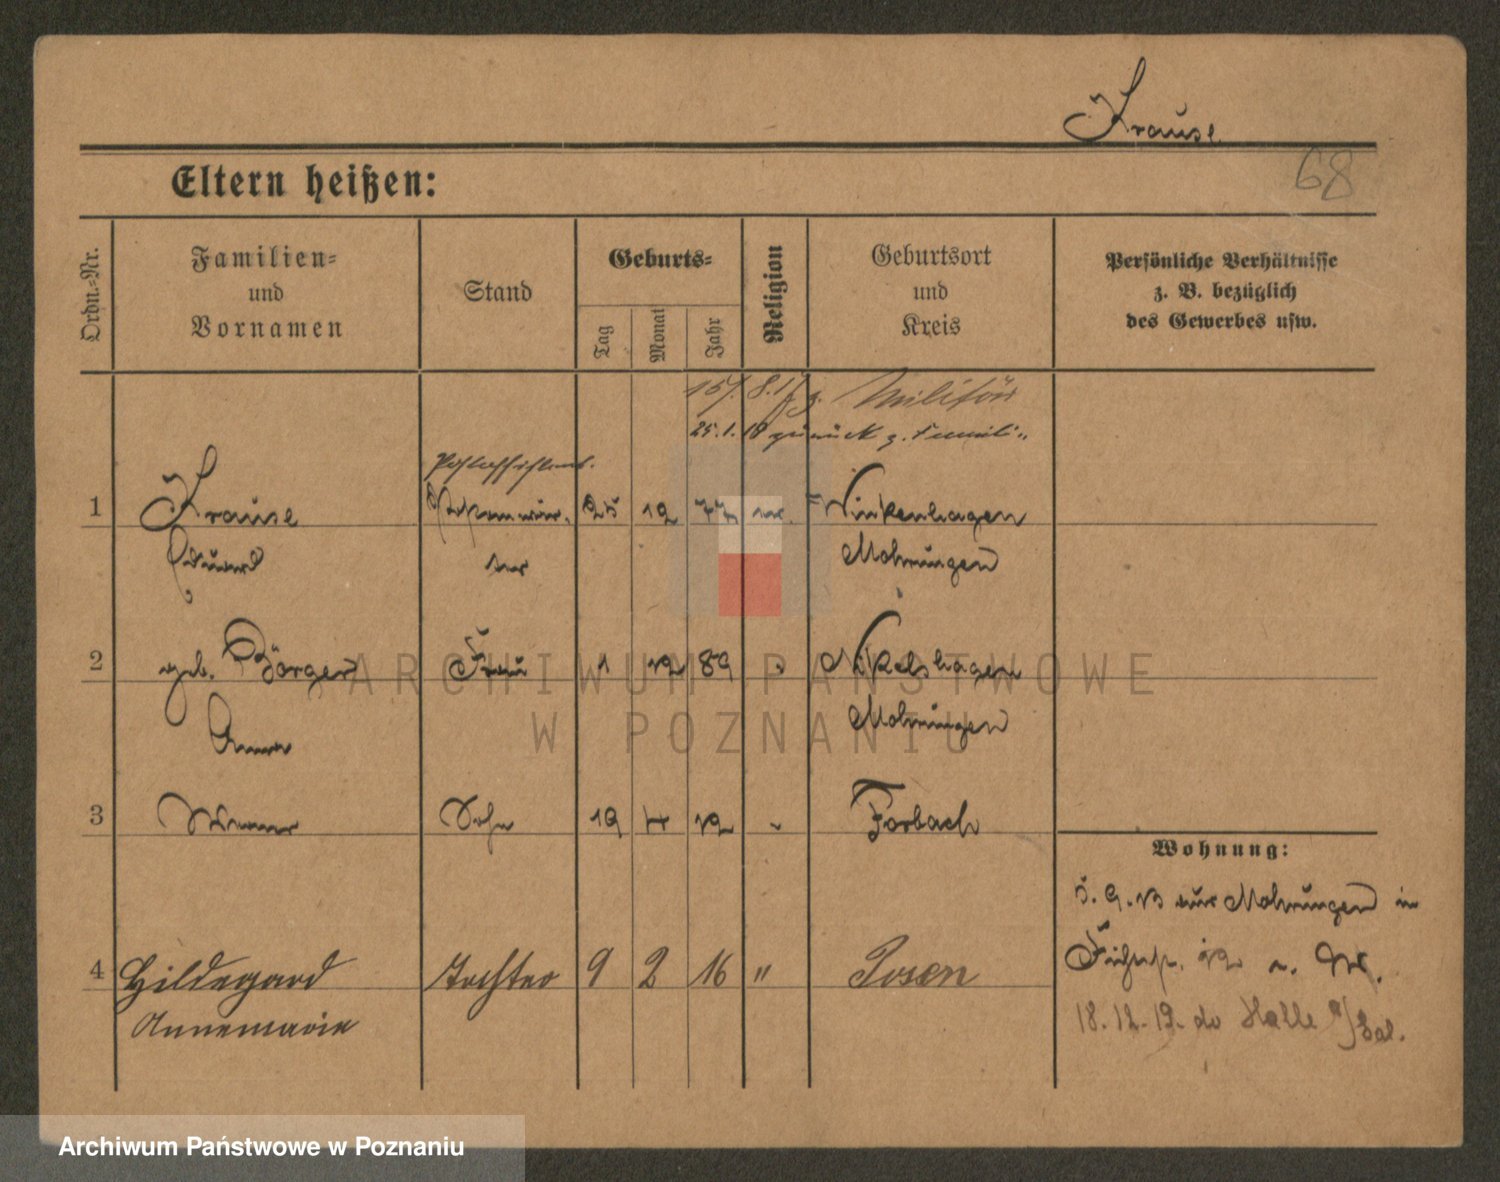 Krause
68
Eltern heißen:
Ordn.-Nr.
Familien-
und
Vornamen
Stand
Geburts-
Tag
Monat
Jahr
Religion
Geburtsort
und
Kreis
Persönliche Verhältnisse
z. B. bezüglich
des Gewerbes usw.
z. Militär
25.1.18 zurück z.
1 Krause 25 12 77 Winkenhagen
Eduard Mohrungen
2 geb. Börger Frau 1 12 89 Nikelshagen
Anna Mohrungen
3 Werner Sohn 19 4 12 Forbach
Wohnung:
5.9.13 aus Mohrungen in
4 Hildegard Tochter 9 2 16 " Posen
Annemarie
18.12.19. Halle a/Saal.
ARCHIWUM PAŃSTWOWE
W POZNANIU
Archiwum Państwowe w Poznaniu